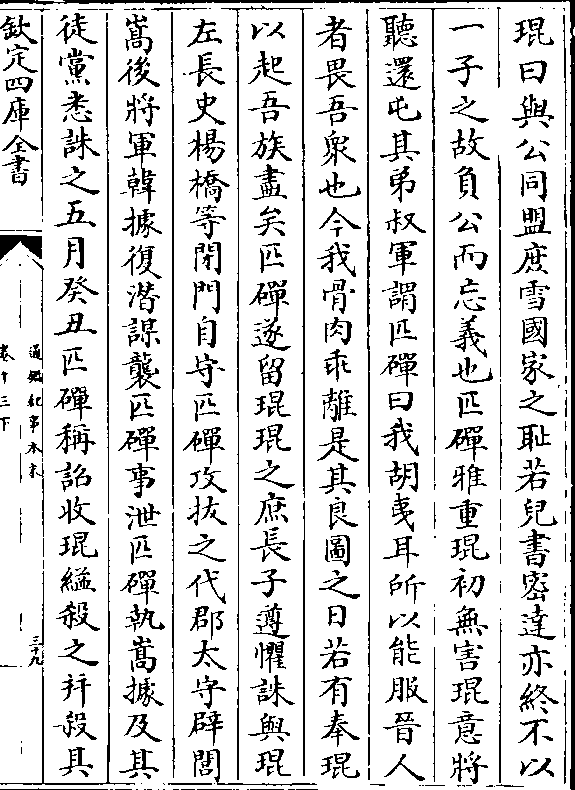 琨曰與公同盟庶雪國家之耻若兒書密達亦終不以
一子之故負公而忘義也匹磾雅重琨初無害琨意將
聽還屯其弟叔軍謂匹磾曰我胡夷耳所以能服晉人
者畏吾衆也今我骨肉乖離是其良圖之日若有奉琨
以起吾族盡矣匹磾遂留琨琨之庶長子遵懼誅與琨
左長史楊橋等閉門自守匹磾攻拔之代郡太守辟閭
嵩後將軍韓據復潜謀襲匹磾事泄匹磾執嵩據及其
徒黨悉誅之五月癸丑匹磾稱詔收琨縊殺之幷殺其
欽定四庫全書
通鑑紀事本末
卷十三下
三十九